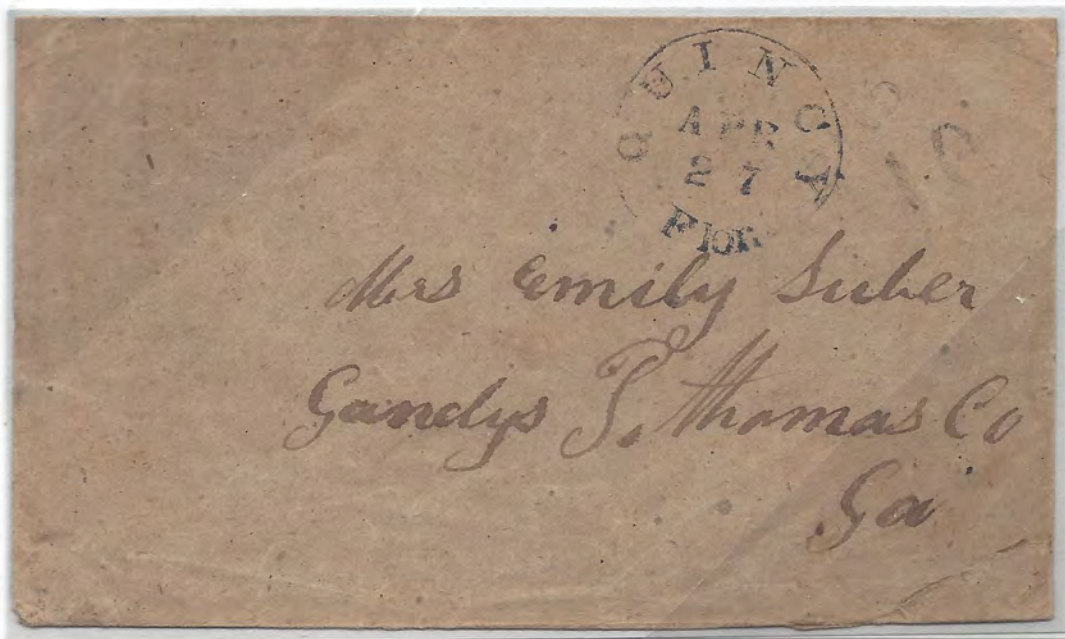 QUINCY
APR
27
Flor
10
Mrs Emily Suber
Gandys Thomas Co
Ga